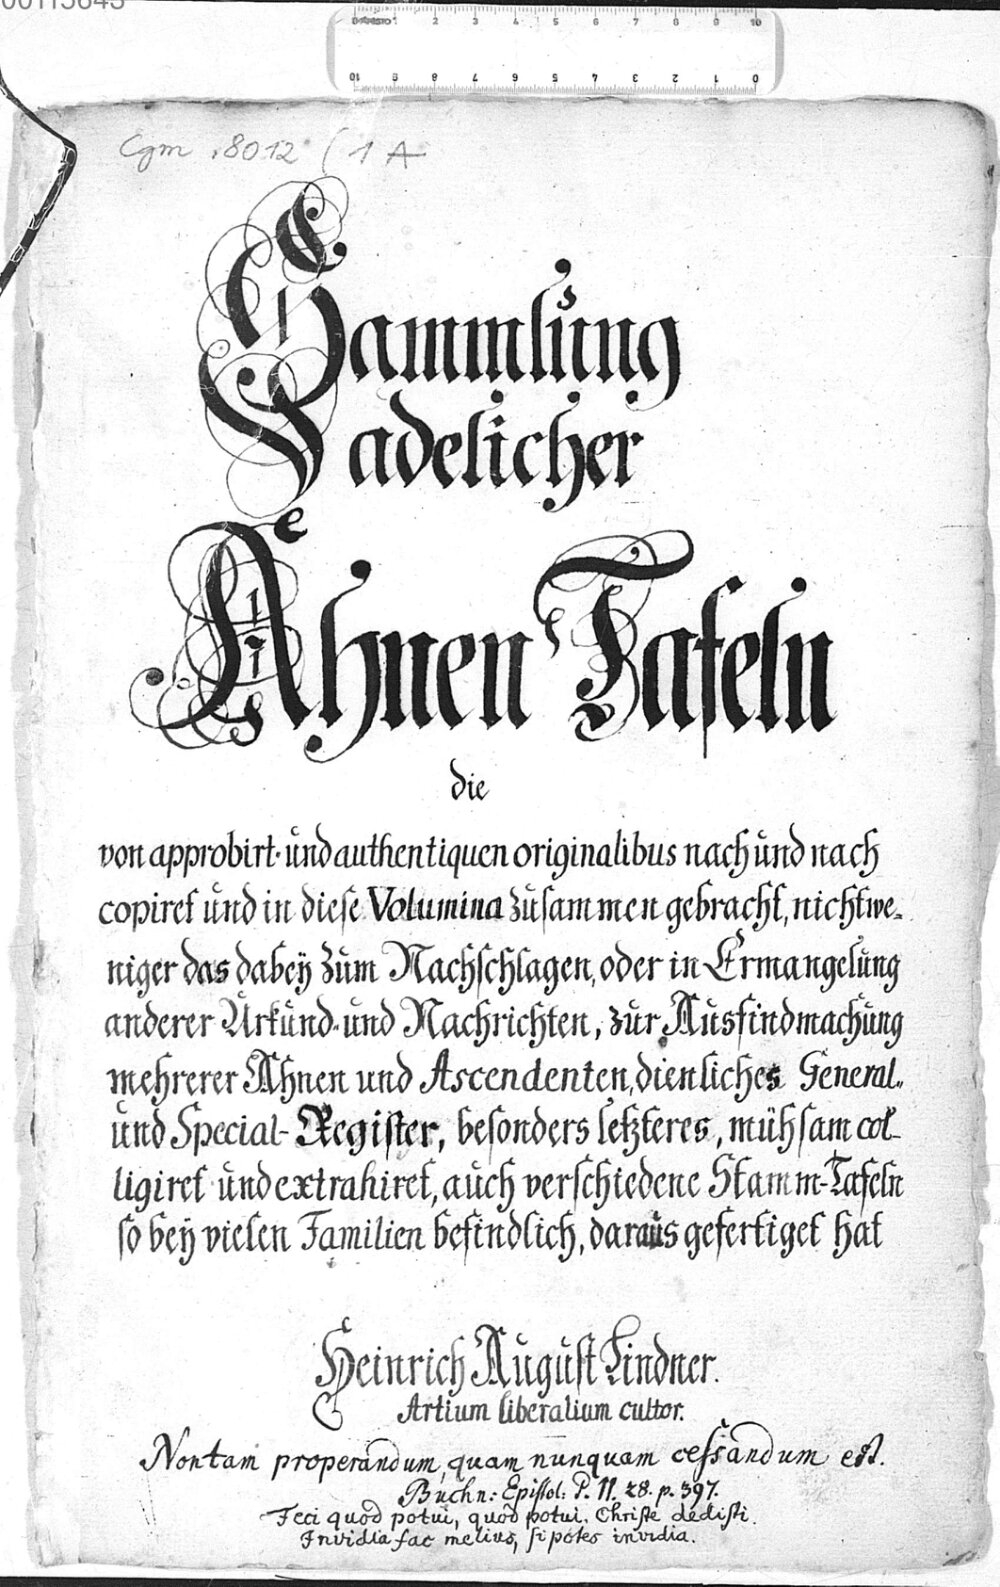 00115843
Cgm 8012 (1 A
Sammlung
adelicher
Ahnen Tafeln
die
von approbirt- und authentiquen originalibus nach und nach
copiret und in diese Volumina zusammen gebracht, nichtwe-
niger das dabey zum Nachschlagen, oder in Ermangelung
anderer Urkund- und Nachrichten, zur Ausfindmachung
mehrerer Ahnen und Ascendenten, dienliches General-
und Special-Register, besonders letzteres, mühsam col-
ligiret und extrahiret, auch verschiedene Stamm-Tafeln
so bey vielen Familien befindlich, daraus gefertiget hat
Heinrich August Lindner.
Artium liberalium cultor.
Non tam properandum, quam nunquam cessandum est.
Buchn: Epistol: P. II. 28. p. 397.
Feci quod potui, quod potui, Christe dedisti.
Invidia fac melius, si potes invidia.